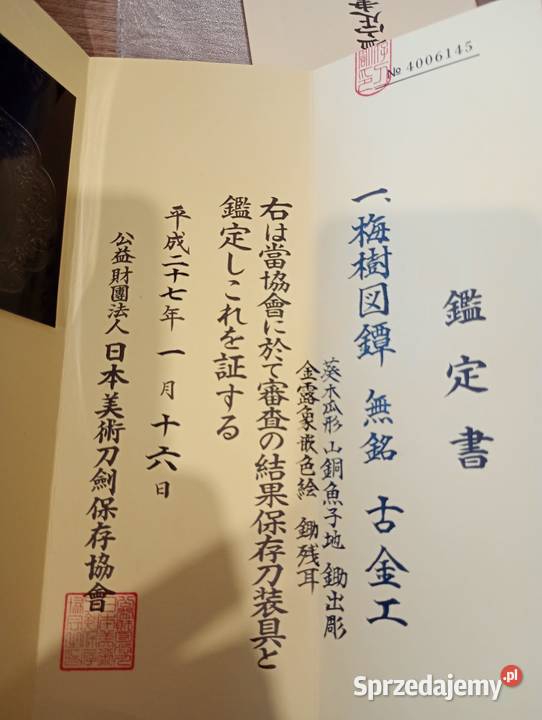 № 4006145
鑑定書
一、梅樹図鐔 無銘 古金工
葵木瓜形 山銅魚子地 鋤出彫
金露象嵌色絵 鋤残耳
右は當協會に於て審査の結果保存刀装具と
鑑定しこれを証する
平成二十七年一月十六日
公益財團法人 日本美術刀劍保存協會
Sprzedajemy.pl